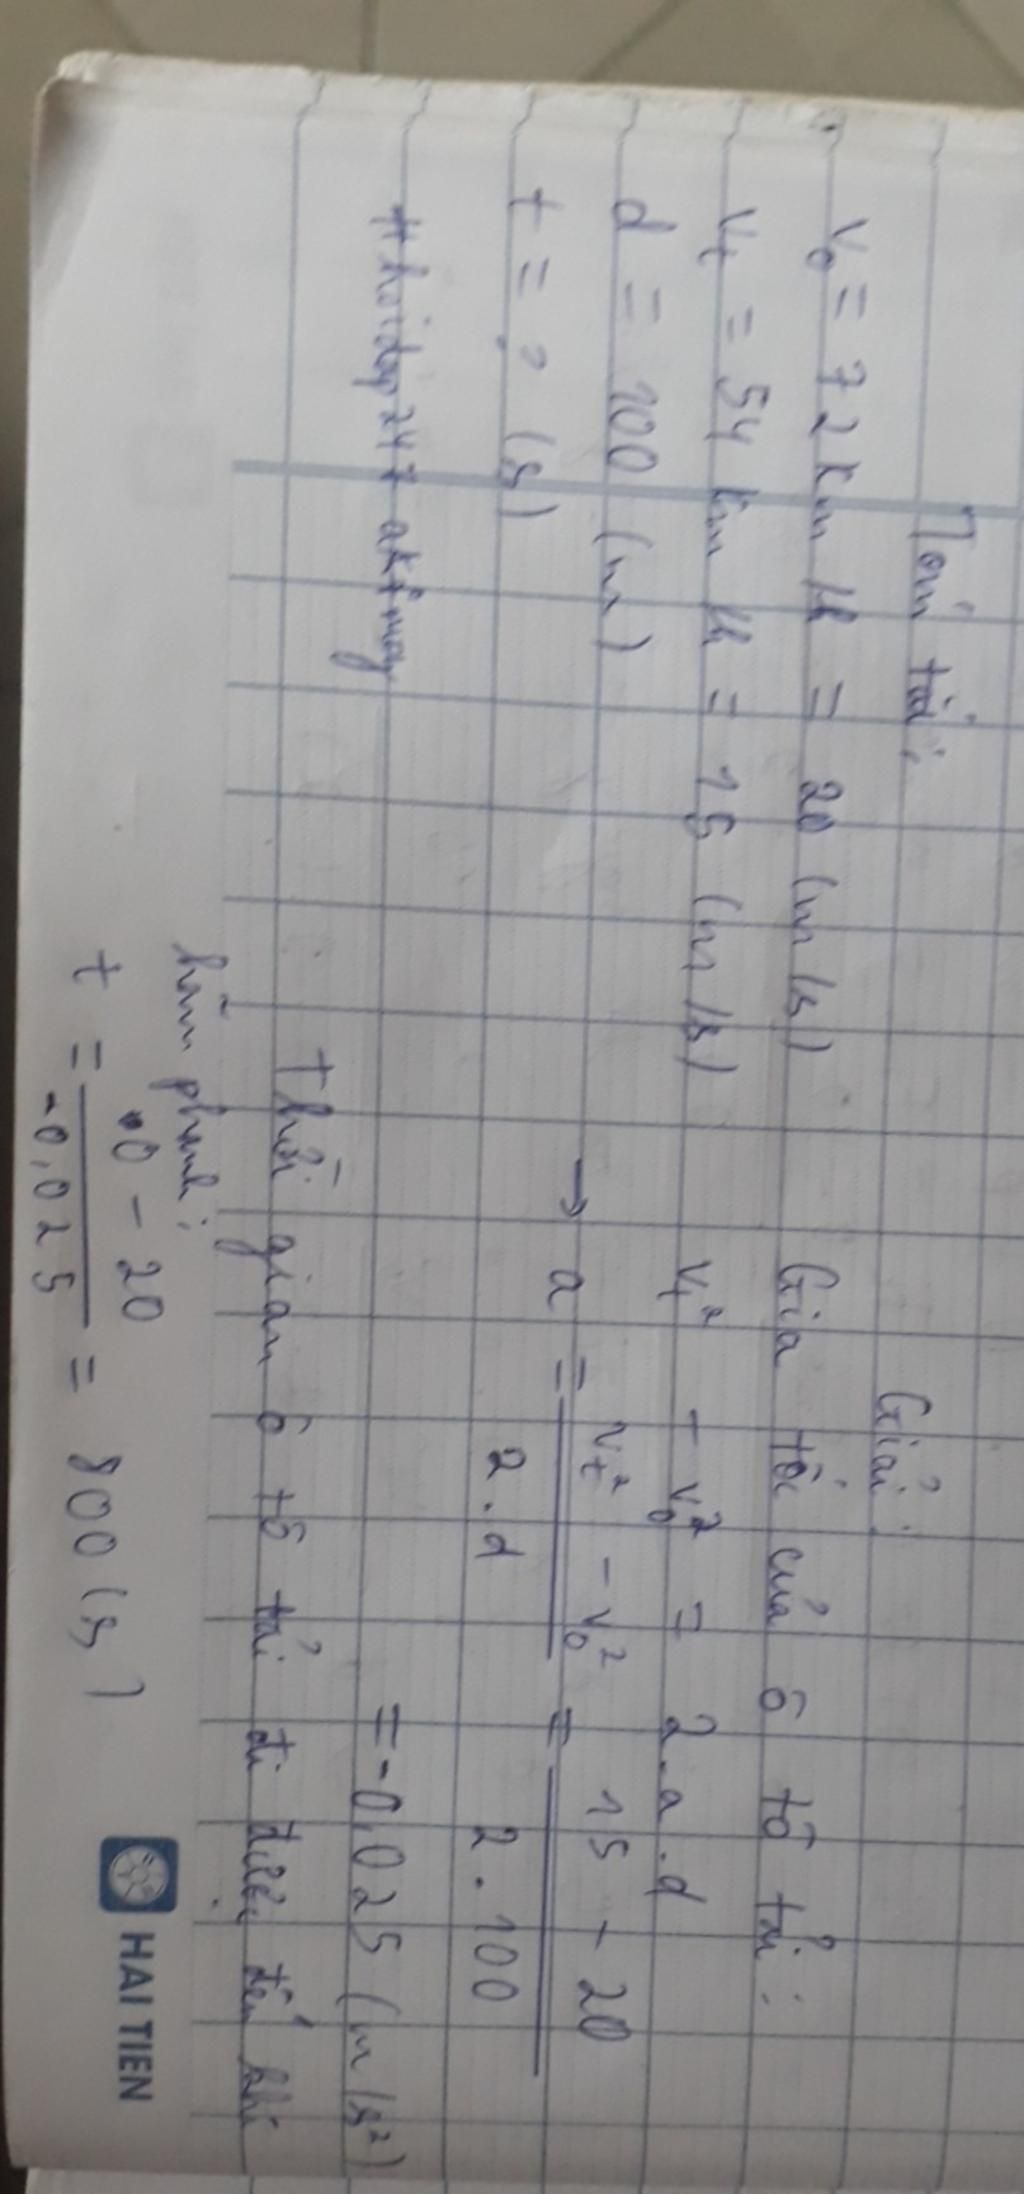 Tóm tắt:
V₀ = 72 km/h = 20 (m/s)
Vₜ = 54 km/h = 15 (m/s)
d = 100 (m)
t = ? (s)
#hoidap247 akimay
Giải:
Gia tốc của ô tô tải:
Vₜ² - V₀² = 2.a.d
→ a = (Vₜ² - V₀²) / (2.d) = (15 - 20) / (2.100)
= -0,025 (m/s²)
Thời gian ô tô tải đi được đến khi
hãm phanh:
t = (0 - 20) / (-0,025) = 800 (s)
HAI TIEN